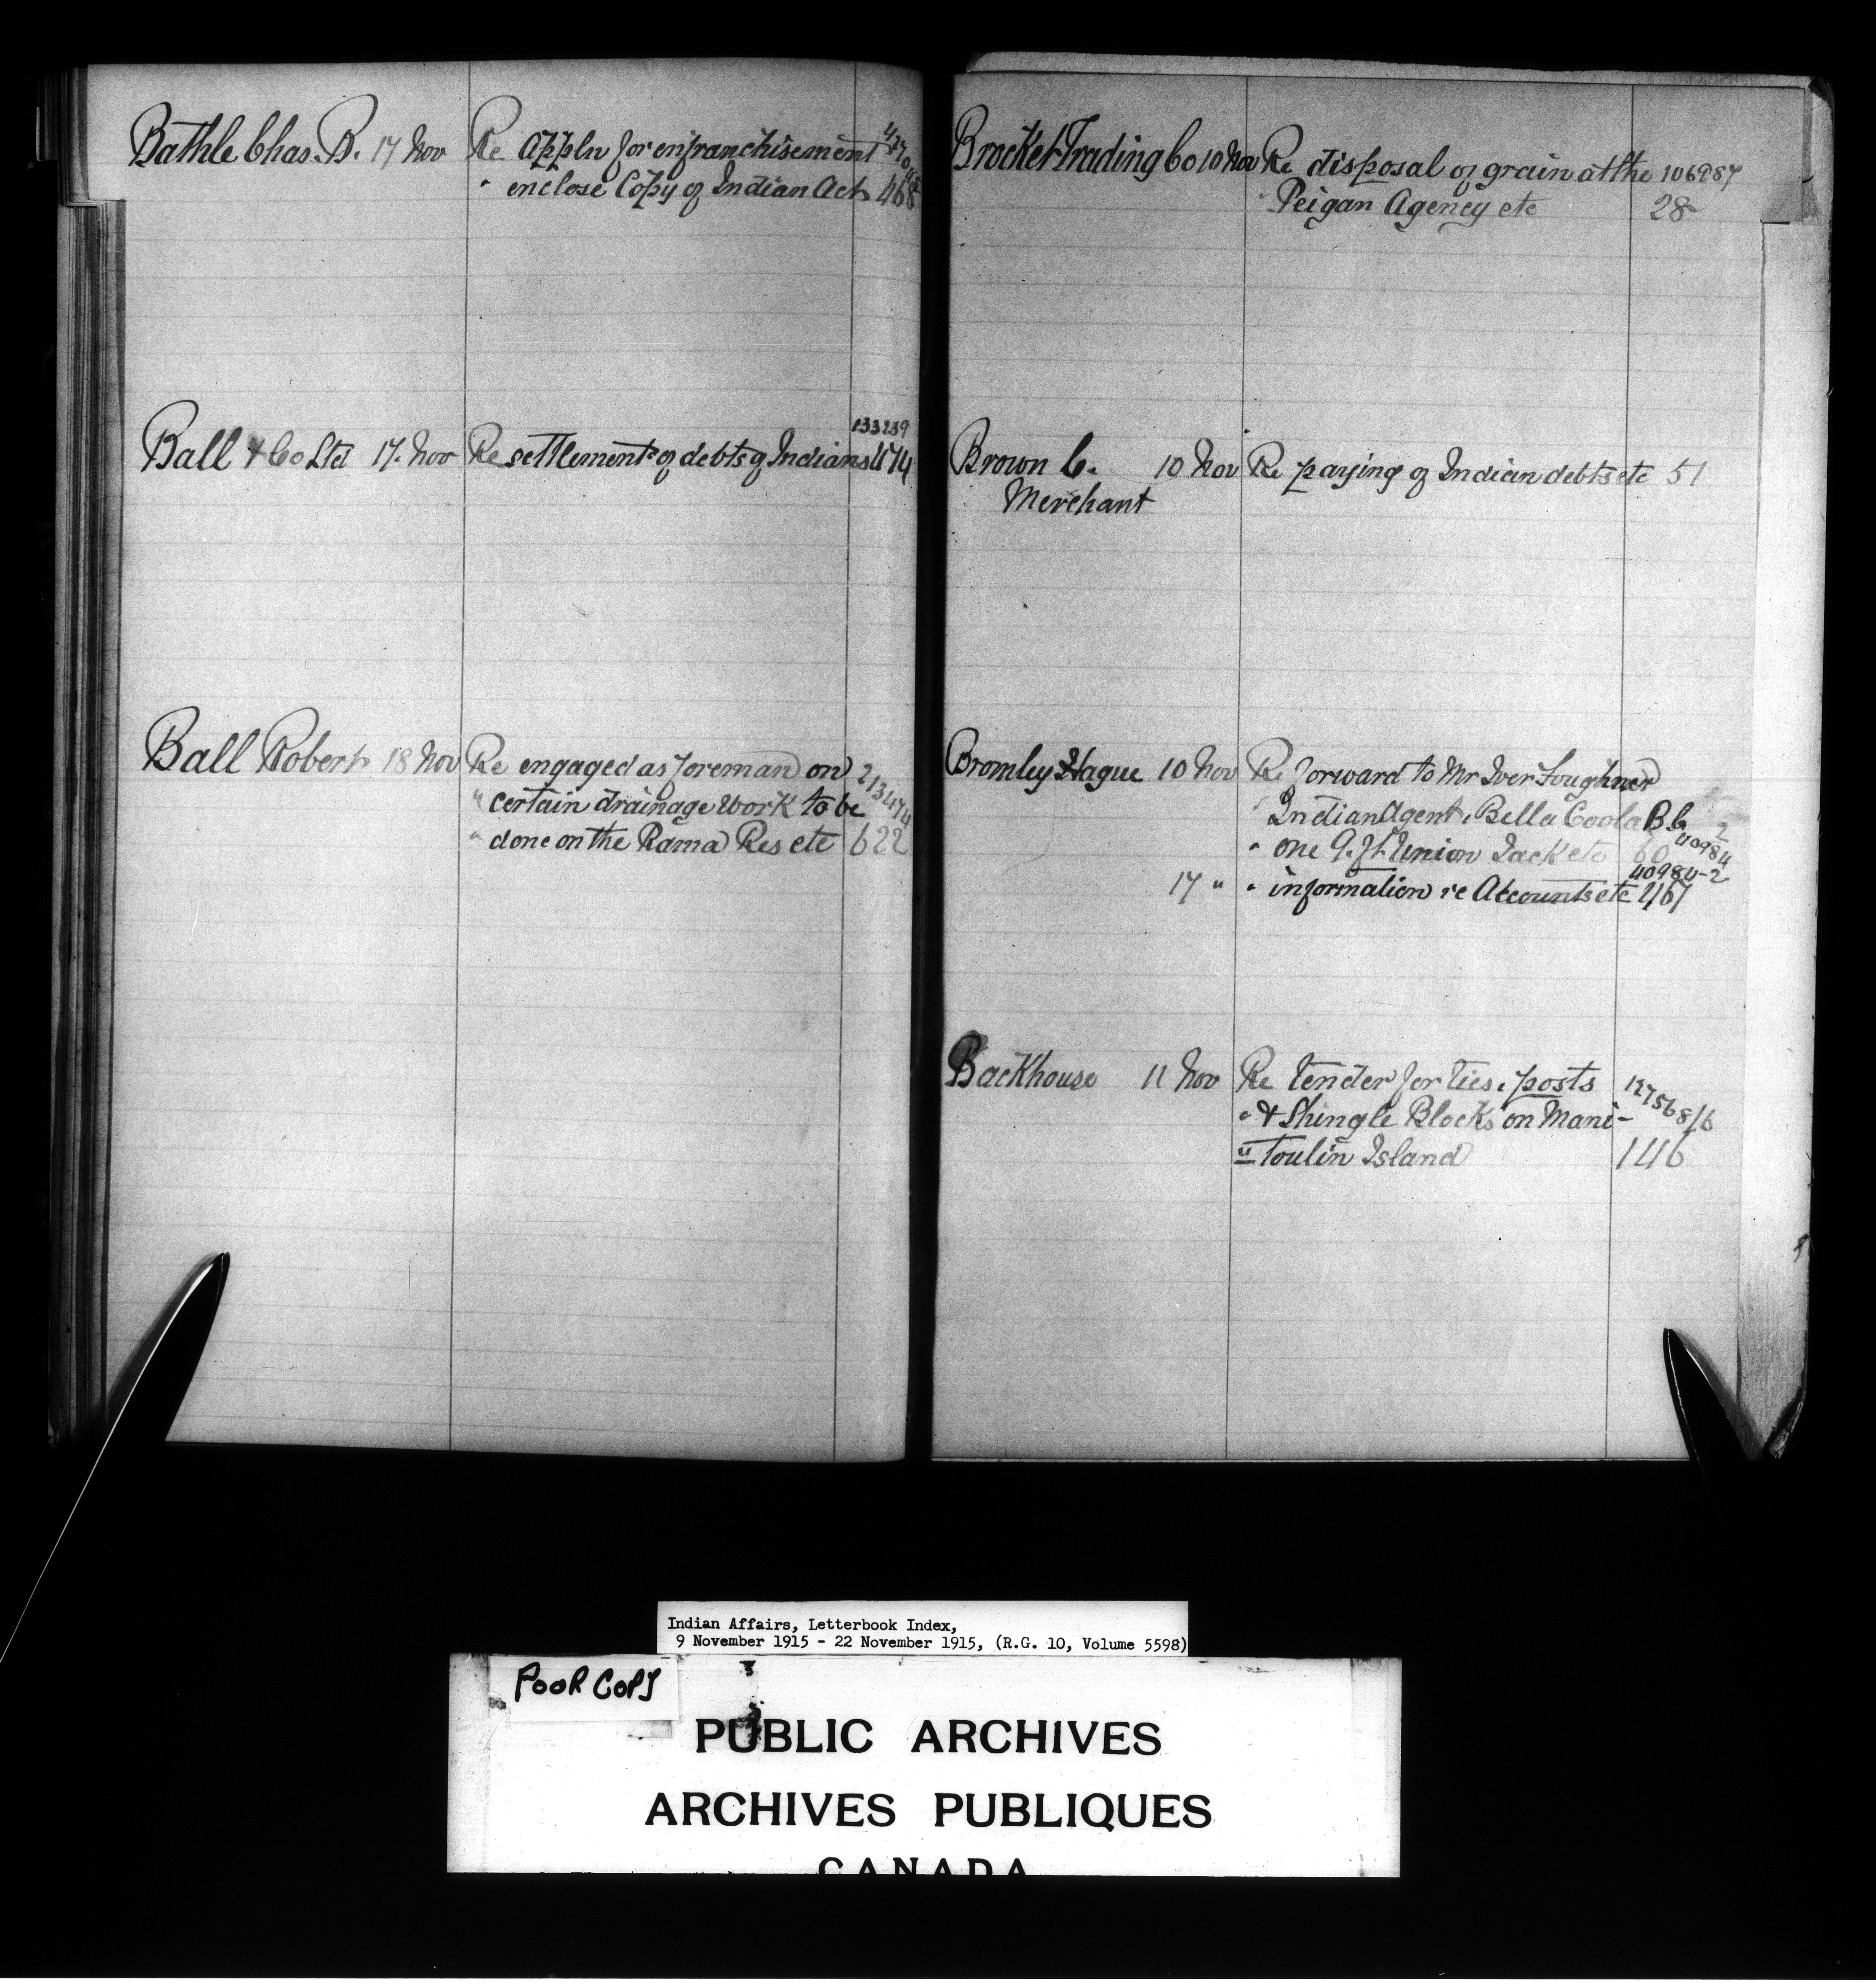 Bathle Chas. B. 17 Nov Re Appln for enfranchisement
" enclose Copy of Indian Act 468
133239
Ball & Co Ltd 17. Nov Re settlement of debts of Indians 474
Ball Robert 18 Nov Re engaged as foreman on 213474
" certain drainage work to be
" done on the Rama Res etc 622
Brocket Trading Co 10 Nov Re disposal of grain at the 106287
" Peigan Agency etc 28
Brown C. 10 Nov Re paying of Indian debts etc 51
Merchant
Bromley Hague 10 Nov Re forward to Mr Iver Fougner
" Indian Agent, Bella Coola B C
40984-2
" one 9. ft. Union Jack etc 60
40984-2
17 " " information re Accounts etc 467
Backhouse 11 Nov Re tender for ties, posts 127568/6
" & Shingle Blocks on Mani-
" toulin Island 146
Indian Affairs, Letterbook Index,
9 November 1915 - 22 November 1915, (R.G. 10, Volume 5598)
POOR COPY
PUBLIC ARCHIVES
ARCHIVES PUBLIQUES
CANADA